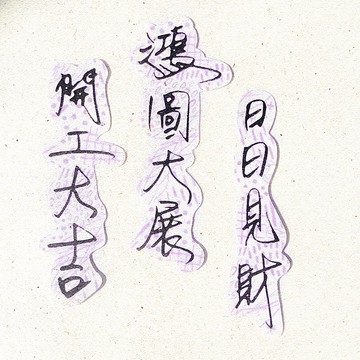 日日見財
鴻圖大展
開工大吉